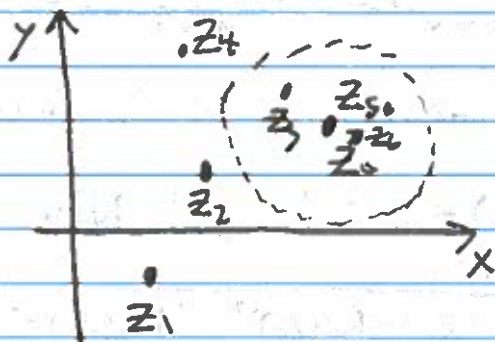 y
.Z₄
Z₅.
Z₃
Z₆
Z₀
Z₂
x
Z₁